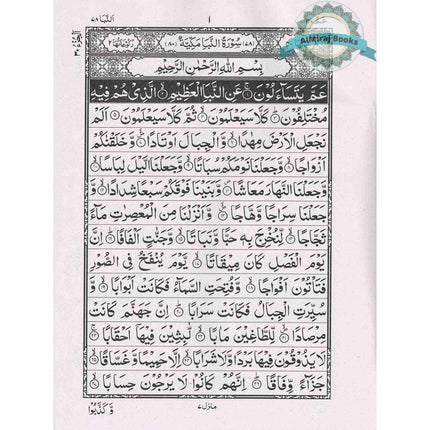 النبا ٧٨
١
عم ٣٠
AlMiraj Books
(٧٨) سُوْرَةُ النَّبَاِ مَكِّيَّةٌ (٨٠)
رُكُوْعَاتُهَا ٢
بِسْمِ اللهِ الرَّحْمٰنِ الرَّحِيْمِ
عَمَّ يَتَسَآءَلُوْنَ ۝ عَنِ النَّبَاِ الْعَظِيْمِ ۝ الَّذِيْ هُمْ فِيْهِ
مُخْتَلِفُوْنَ ۝ كَلَّا سَيَعْلَمُوْنَ ۝ ثُمَّ كَلَّا سَيَعْلَمُوْنَ ۝ اَلَمْ
نَجْعَلِ الْاَرْضَ مِهٰدًا ۝ وَّالْجِبَالَ اَوْتَادًا ۝ وَّخَلَقْنٰكُمْ
اَزْوَاجًا ۝ وَّجَعَلْنَا نَوْمَكُمْ سُبَاتًا ۝ وَّجَعَلْنَا الَّيْلَ لِبَاسًا ۝
وَّجَعَلْنَا النَّهَارَ مَعَاشًا ۝ وَّبَنَيْنَا فَوْقَكُمْ سَبْعًا شِدَادًا ۝ وَّ
جَعَلْنَا سِرَاجًا وَّهَّاجًا ۝ وَّاَنْزَلْنَا مِنَ الْمُعْصِرٰتِ مَآءً
ثَجَّاجًا ۝ لِّنُخْرِجَ بِهٖ حَبًّا وَّنَبَاتًا ۝ وَّجَنّٰتٍ اَلْفَافًا ۝ اِنَّ
يَوْمَ الْفَصْلِ كَانَ مِيْقَاتًا ۝ يَّوْمَ يُنْفَخُ فِي الصُّوْرِ
فَتَاْتُوْنَ اَفْوَاجًا ۝ وَّفُتِحَتِ السَّمَآءُ فَكَانَتْ اَبْوَابًا ۝ وَّ
سُيِّرَتِ الْجِبَالُ فَكَانَتْ سَرَابًا ۝ اِنَّ جَهَنَّمَ كَانَتْ
مِرْصَادًا ۝ لِّلطَّاغِيْنَ مَاٰبًا ۝ لّٰبِثِيْنَ فِيْهَآ اَحْقَابًا ۝
لَا يَذُوْقُوْنَ فِيْهَا بَرْدًا وَّلَا شَرَابًا ۝ اِلَّا حَمِيْمًا وَّغَسَّاقًا ۝
جَزَآءً وِّفَاقًا ۝ اِنَّهُمْ كَانُوْا لَا يَرْجُوْنَ حِسَابًا ۝
منزل ٧
وَّكَذَّبُوْا